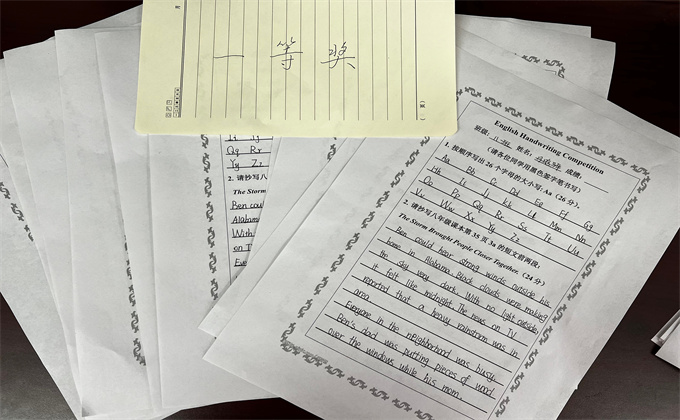 一等奖
Qq Rr
Yy Zz
2. 请抄写八
The Storm
Ben cou
Alabama
With
on T
Eve
English Handwriting Competition
班级: 姓名: 成绩:
(请各位同学用黑色签字笔书写)
1. 按顺序写出 26 个字母的大小写: Aa (26 分).
Aa Bb Cc Dd Ee Ff Gg
Hh Ii Jj Kk Ll Mm Nn
Oo Pp Qq Rr Ss Tt Uu
Vv Ww Xx Yy Zz
2. 请抄写八年级课本第 35 页 3a 的短文前两段:
The Storm Brought People Closer Together. (24 分)
Ben could hear strong winds outside his
home in Alabama. Black clouds were making
the sky very dark. With no light outside
it felt like midnight. The news on TV
reported that a heavy rainstorm was in
area
Everyone in the neighborhood was busy.
Ben's dad was putting pieces of wood
over the windows while his mom